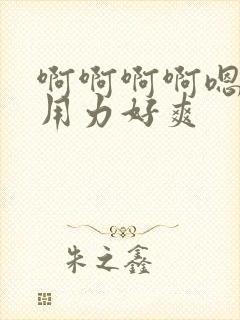 啊啊啊啊嗯
用力好爽
朱之鑫